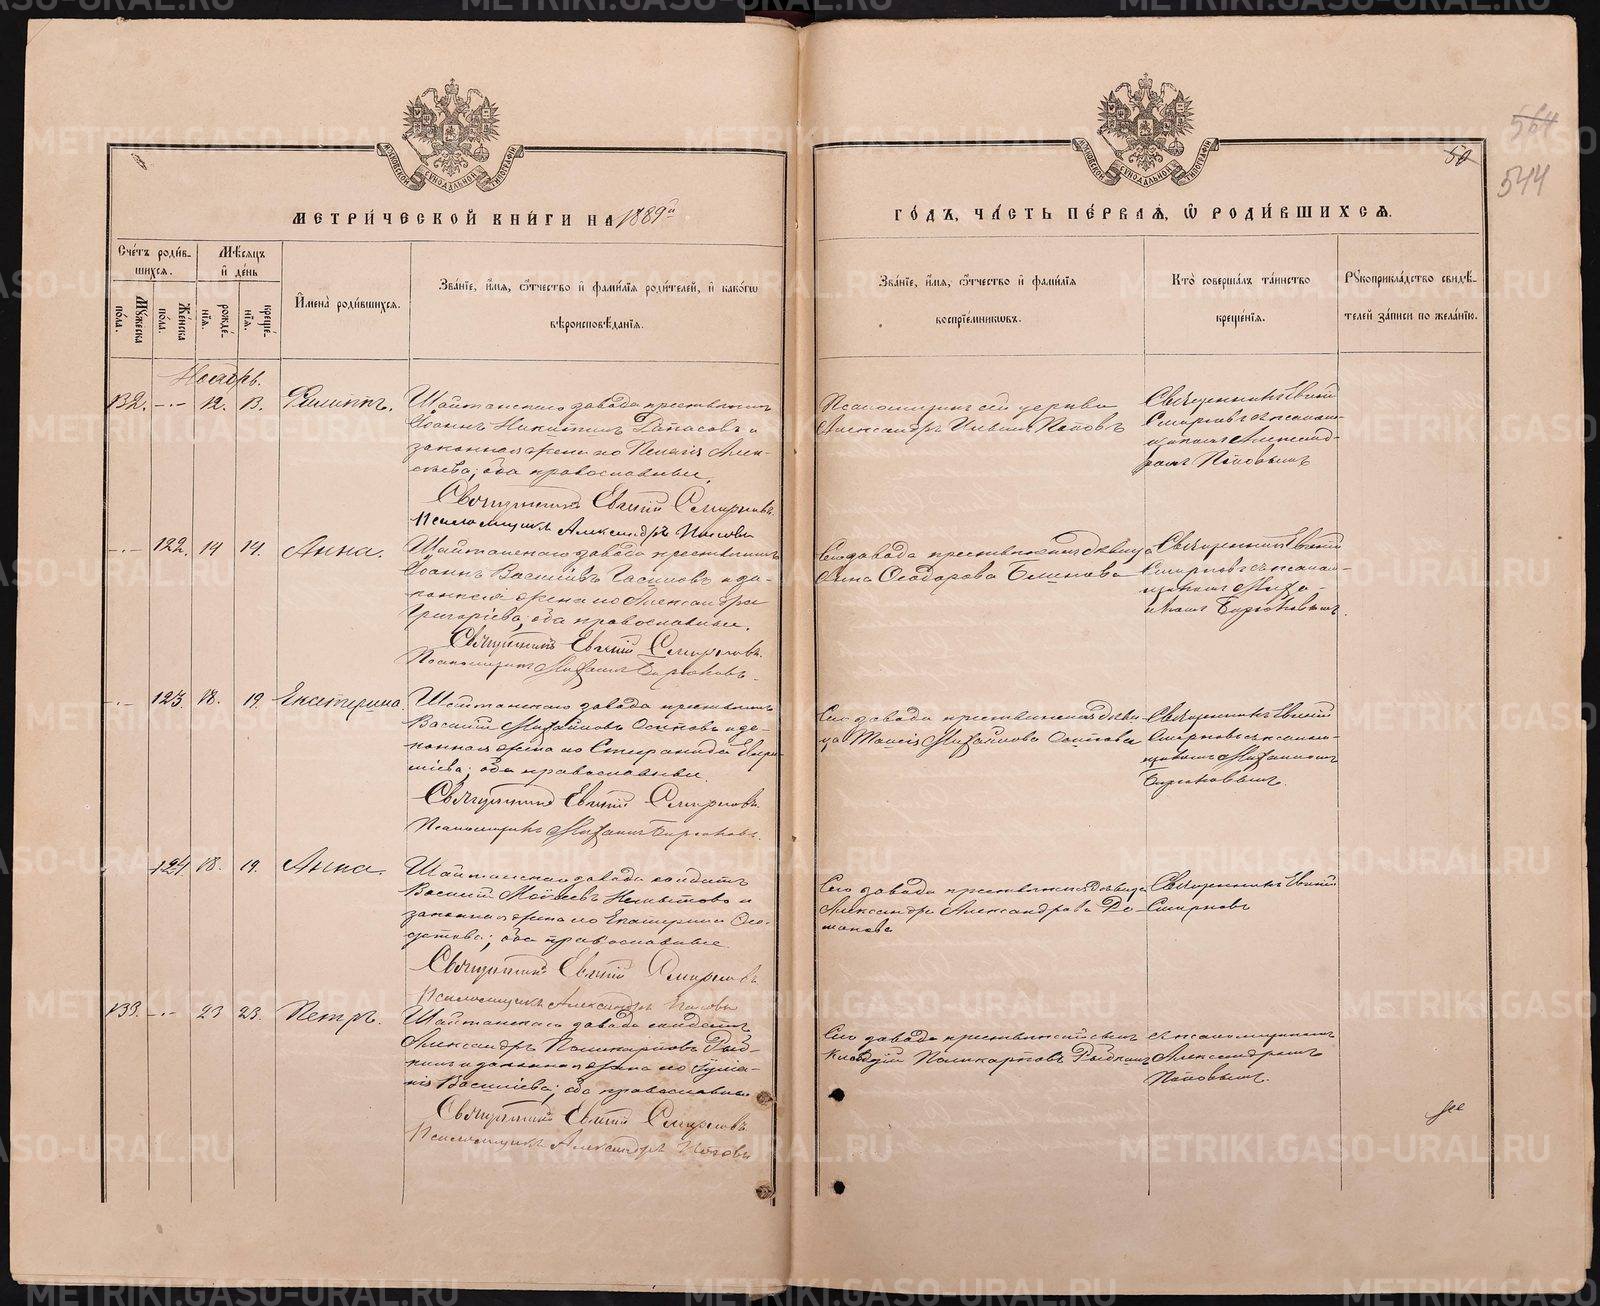 564
50
544
МОСКОВСКОЙ СУНОДАЛЬНОЙ ТИПОГРАФІИ
МОСКОВСКОЙ СУНОДАЛЬНОЙ ТИПОГРАФІИ
МЕТРИ́ЧЕСКОЙ КНИ́ГИ НА 1889й
ГО́ДЪ, ЧА́СТЬ ПЕ́РВАѦ, Ѽ РОДИ́ВШИХСѦ.
Сче́тъ роди́в-
шихсѧ.
Мꙋ́жеска по́ла.
Же́нска по́ла.
Мѣ́сѧцъ
и҆ де́нь
рожде́-
нїѧ.
креще́-
нїѧ.
И҆мена̀ роди́вшихсѧ.
Зва́нїе, и҆́мѧ, ѻ҆́тчество и҆ фамѝлїѧ роди́телей, и҆ како́гѡ
вѣроисповѣ́данїѧ.
Зва́нїе, и҆́мѧ, ѻ҆́тчество и҆ фамѝлїѧ
воспрїе́мникѡвъ.
Кто̀ соверша́лъ та́инство
креще́нїѧ.
Рꙋкоприкла́дство свидѣ́-
телей за́писи по жела́нїю.
Ноябрь.
132. -.- 12. 13. Филиппъ.
Шайтанскаго завода крестьянинъ
Іоаннъ Никитинъ и
законная жена его Пелагія Алек-
сѣева; оба православные.
Священникъ Евгеній Смирновъ.
Псаломщикъ Александръ Поповъ
Псаломщикъ сей церкви
Александръ Ильинъ Поповъ
Священникъ Евгеній
Смирновъ съ псалом-
щикомъ Александ-
ромъ Поповымъ
-.- 122. 14 14. Анна.
Шайтанскаго завода крестьянинъ
Іоаннъ Васильевъ и за-
конная жена его Александра
Григорьева; оба православные.
Священникъ Евгеній Смирновъ.
Псаломщикъ Михаилъ Бирюковъ.
Сего завода крестьянская дѣвица
Анна Ѳеодорова Блинова
Священникъ Евгеній
Смирновъ съ псалом-
щикомъ Миха-
иломъ Бирюковымъ.
-.- 123. 18. 19. Екатерина.
Шайтанскаго завода крестьянинъ
Василій Михайловъ Осиповъ и за-
конная жена его Стефанида
оба православные.
Священникъ Евгеній Смирновъ.
Псаломщикъ Михаилъ Бирюковъ.
Сего завода крестьянская дѣви-
ца Михайлова Осипова
Священникъ Евгеній
Смирновъ съ псалом-
щикомъ Михаиломъ
Бирюковымъ.
124. 18. 19. Анна.
Шайтанскаго завода солдатъ
Василій Моисеевъ и
законная жена его Екатерина
оба православные.
Священникъ Евгеній Смирновъ
Псаломщикъ Александръ Поповъ
Сего завода крестьянская дѣвица
Александра Александрова Ро-
манова
Священникъ Евгеній
Смирновъ
133. -.- 23 23. Петръ.
Шайтанскаго завода солдатъ
Александръ Поликарповъ Рыб-
кинъ и законная жена его Іулiа-
нія Васильева; оба православные
Священникъ Евгеній Смирновъ.
Псаломщикъ Александръ Поповъ
Сего завода крестьянскій сынъ
Клавдій Поликарповъ Рыбкинъ
съ псаломщикомъ
Александромъ
Поповымъ.
METRIKI.GASO-URAL.RU